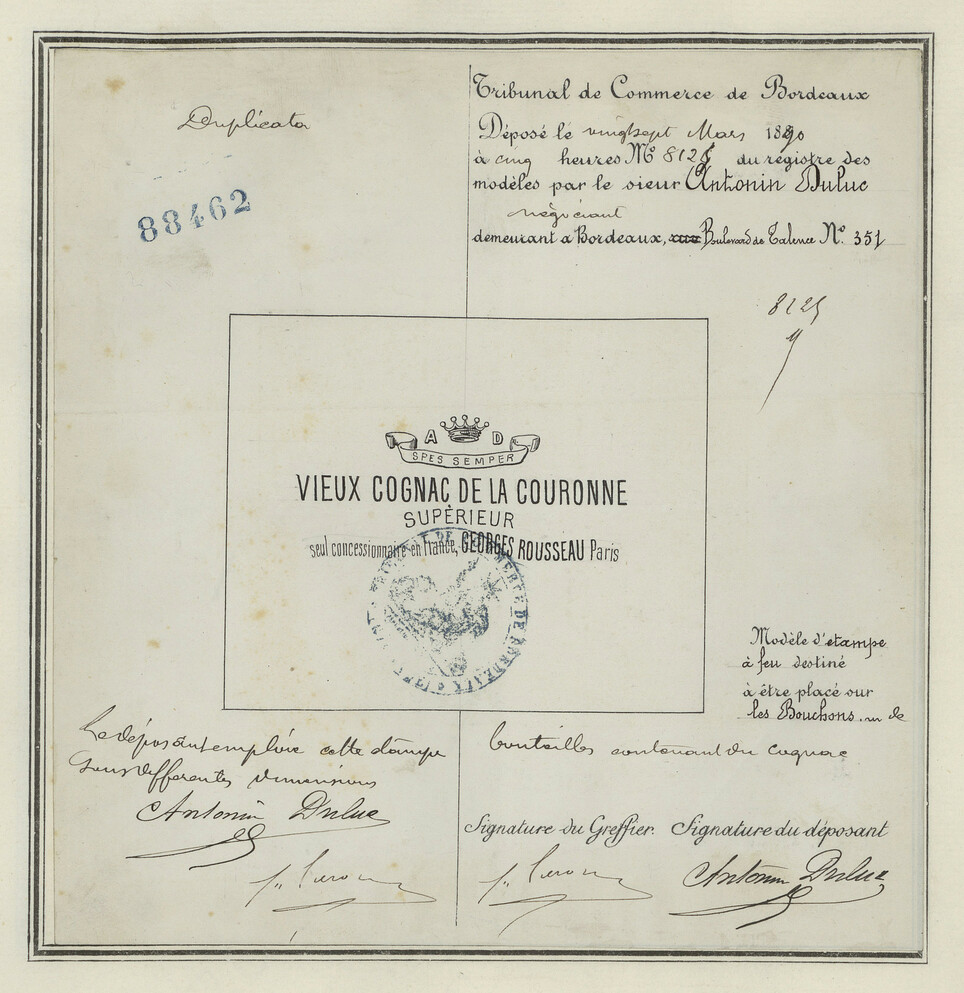 Duplicata
88462
Tribunal de Commerce de Bordeaux
Déposé le vingt sept Mars 1890
à cinq heures No 8125 du régistre des
modèles par le sieur Antonin Duluc
négociant
demeurant a Bordeaux, Boulevard de Talence No. 351
8125
A D
SPES SEMPER
VIEUX COGNAC DE LA COURONNE
SUPÉRIEUR
seul concessionnaire en France, GEORGES ROUSSEAU Paris
TRIBUNAL DE COMMERCE DE BORDEAUX
Modèle d'etampe
à feu destiné
à être placé sur
les Bouchons de
bouteilles contenant du cognac
Le déposant emploie cette étampe
sous differentes dimensions
Antonin Duluc
Signature du Greffier. Signature du déposant
Antonin Duluc